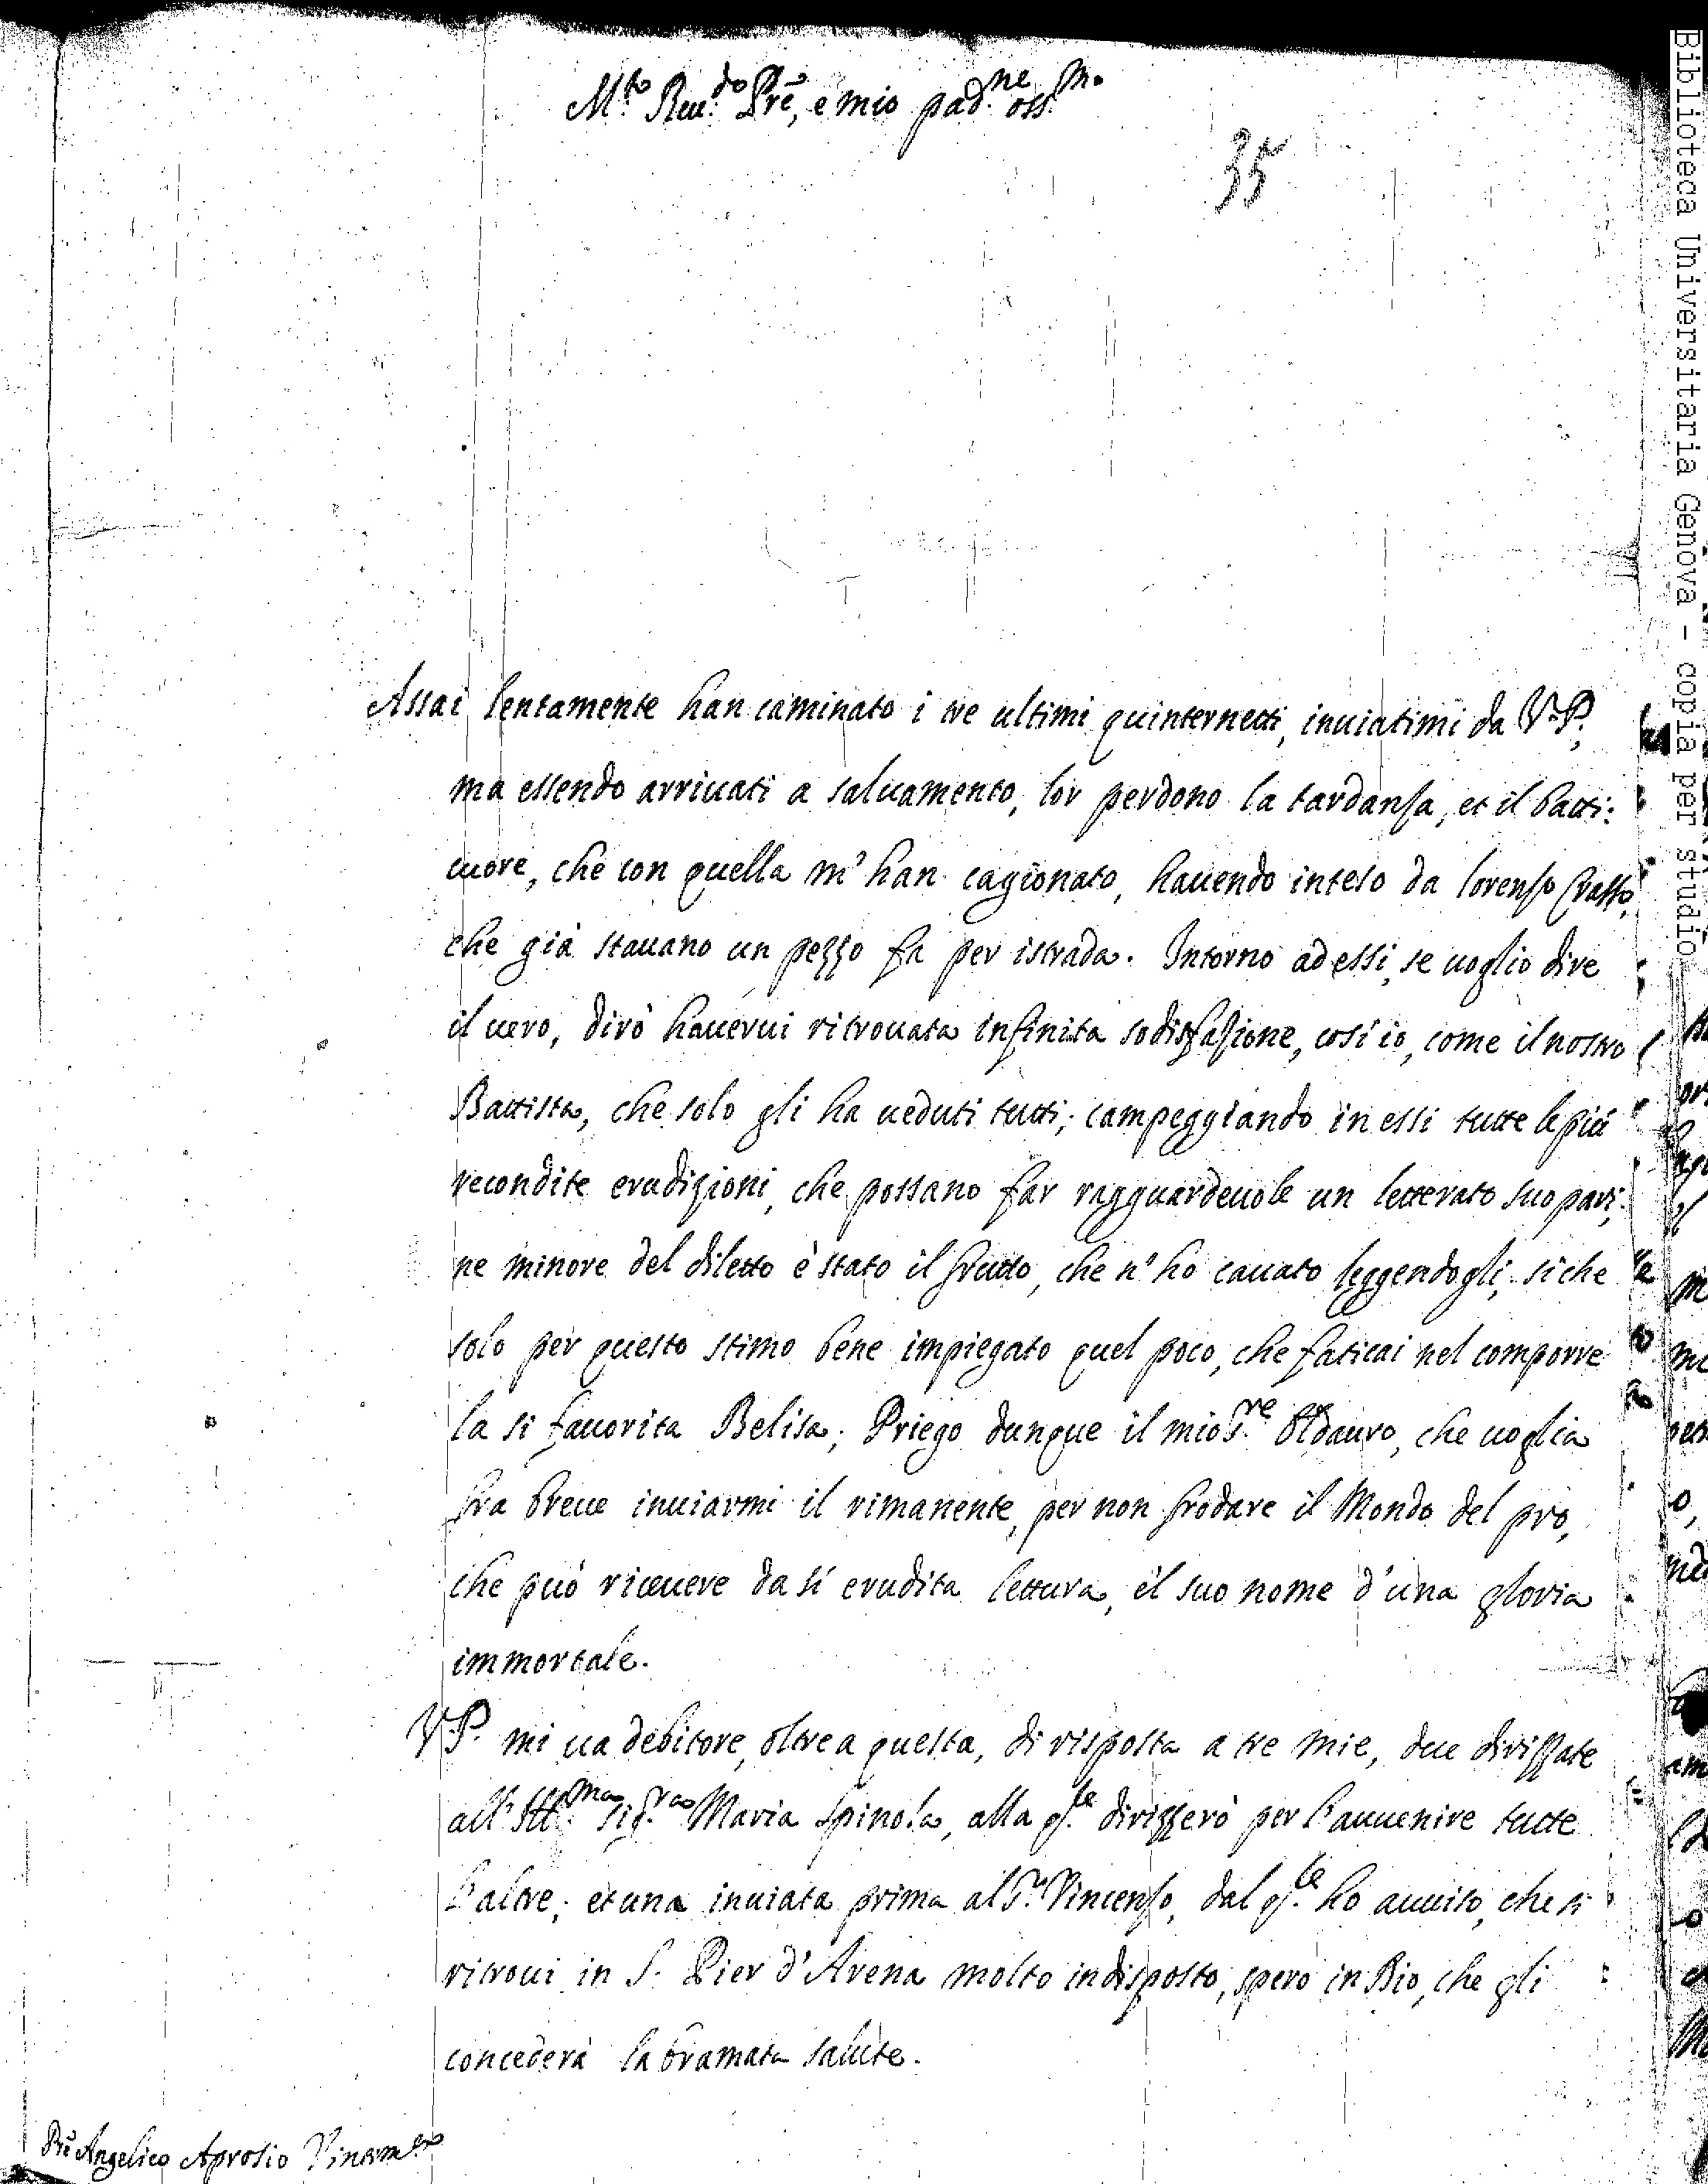 M.to Reu.do Prē, e mio pad.ne oss.mo
35
Assai lentamente han caminato i tre ultimi quinternetti, inuiatimi da V.P.;
ma essendo arriuati a saluamento, lor perdono la tardanza, et il batti:
cuore, che con quella m'han cagionato, hauendo inteso da Lorenzo Crasso,
che già stauano un pezzo fa per istrada. Intorno ad essi, se uoglio dire
il uero, dirò hauerui ritrouata infinita sodisfazione, così io, come il nostro
Battista, che solo gli ha ueduti tutti; campeggiando in essi tutte le più
recondite erudizioni, che possano far ragguardeuole un letterato suo pari;
ne minore del diletto è stato il frutto, che n'ho cauato leggendogli, si che
solo per questo stimo bene impiegato quel poco, che faticai nel comporre
la si fauorita Belisa; Priego dunque il mio S.re Oldauro, che uoglia
fra breue inuiarmi il rimanente, per non frodare il Mondo del pro,
che può riceuere da sí erudita lettura, e'l suo nome d'una gloria
immortale.
V.P. mi ua debitore, oltre a questa, di risposta a tre mie, due dirizzate
all'Ill.ma Sig.ra Maria Spinola, alla q.le dirizzerò per l'auuenire tutte
l'altre; et una inuiata prima al S.r Vincenzo, dal q.le ho auuiso, che si
ritroui in S. Pier d'Arena molto indisposto, spero in Dio, che gli
concederà la bramata salute.
Prē Angelico Aprosio
Biblioteca Universitaria Genova - copia per studio